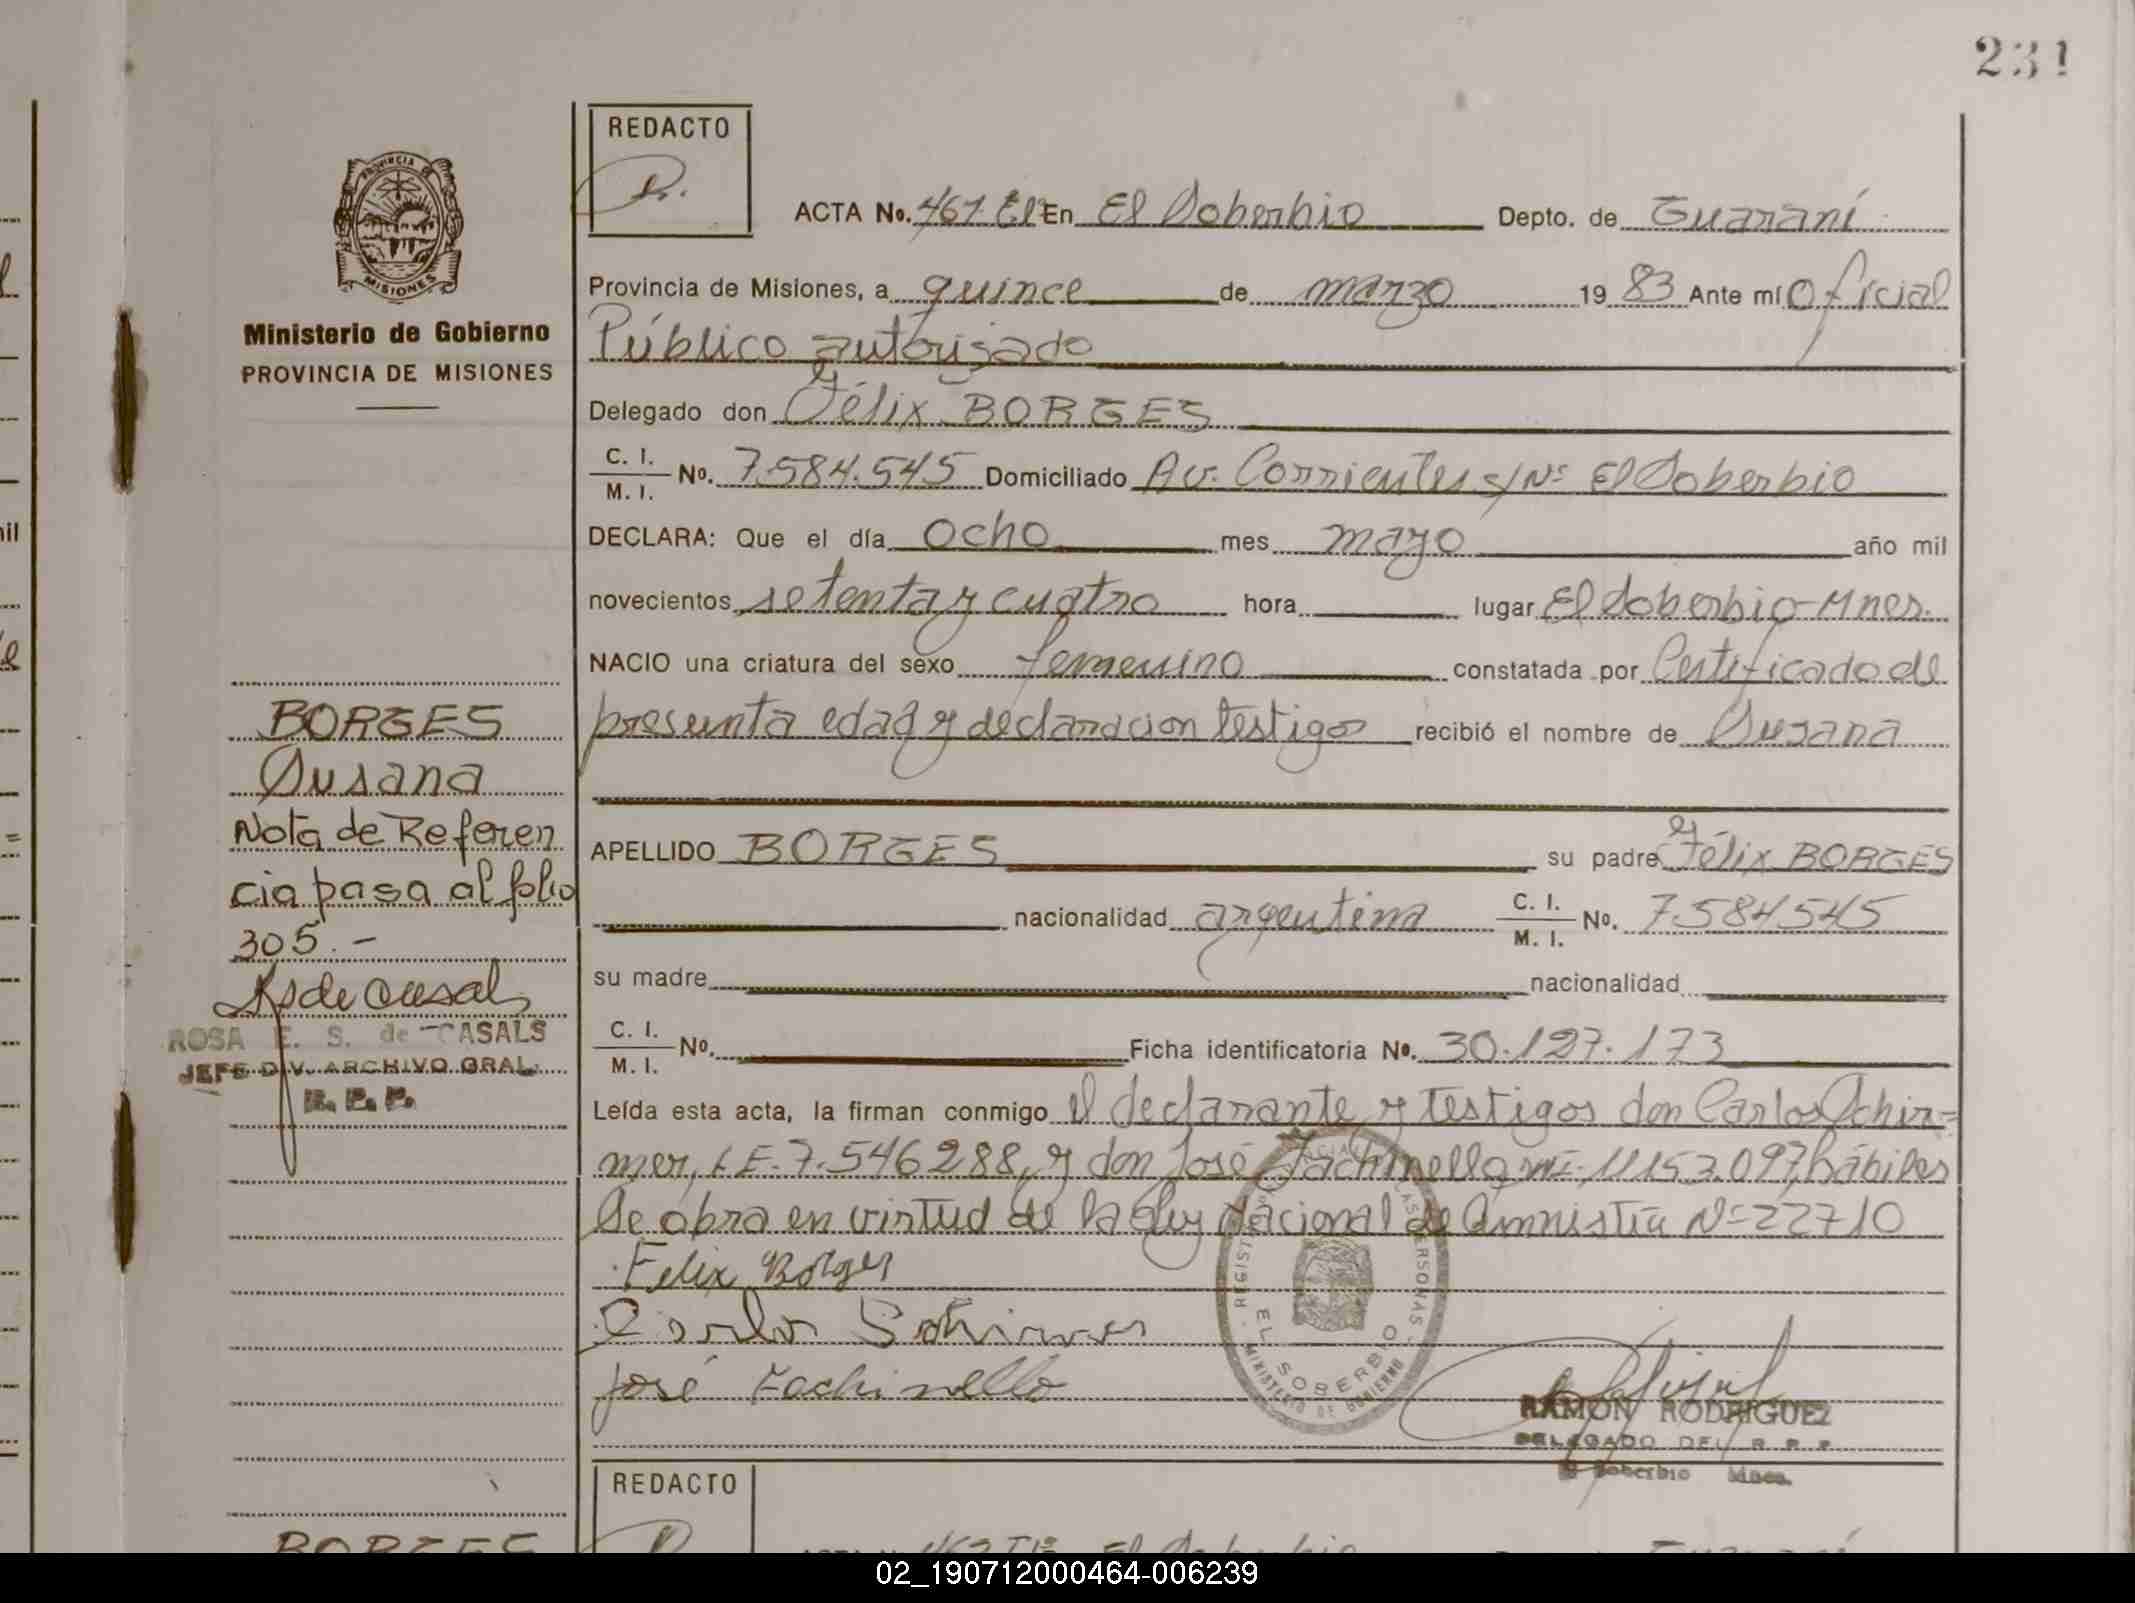 231
REDACTO
ACTA No. 461 En El Soberbio Depto. de Guaraní
Provincia de Misiones, a quince de marzo 1983 Ante mí Oficial
Público autorizado
Delegado don Félix BORGES
C. I. M. I. No. 7.584.545 Domiciliado Av. Corrientes s/Nº El Soberbio
DECLARA: Que el día ocho mes mayo año mil
novecientos setenta y cuatro hora lugar El Soberbio-Mnes.
NACIO una criatura del sexo femenino constatada por Certificado de
presunta edad y declaracion testigos recibió el nombre de Susana
APELLIDO BORGES su padre Félix BORGES
nacionalidad argentina C. I. M. I. No. 7.584545
su madre nacionalidad
C. I. M. I. No. Ficha identificatoria No. 30.127.173
Leída esta acta, la firman conmigo el declarante y testigos don Carlos Schir=
mer, L.E. 7.546288, y don José Zachinello MI. 11153.097, hábiles
Se obra en virtud de la Ley Nacional de Amnistía Nº 22710
Felix Borges
Carlos Schirmer
José Zachinello
REGISTRO PERSONAS
EL SOBERBIO
MINISTERIO DE GOBIERNO
RAMON RODRIGUEZ
DELEGADO DEL R. P. P.
El Soberbio Mnes.
PROVINCIA DE
MISIONES
Ministerio de Gobierno
PROVINCIA DE MISIONES
BORGES
Susana
Nota de Referen
cia pasa al folio
305.-
ROSA E. S. de CASALS
JEFE DIV. ARCHIVO GRAL.
R. P. P.
REDACTO
BORGES
El Soberbio
Guaraní
02_190712000464-006239